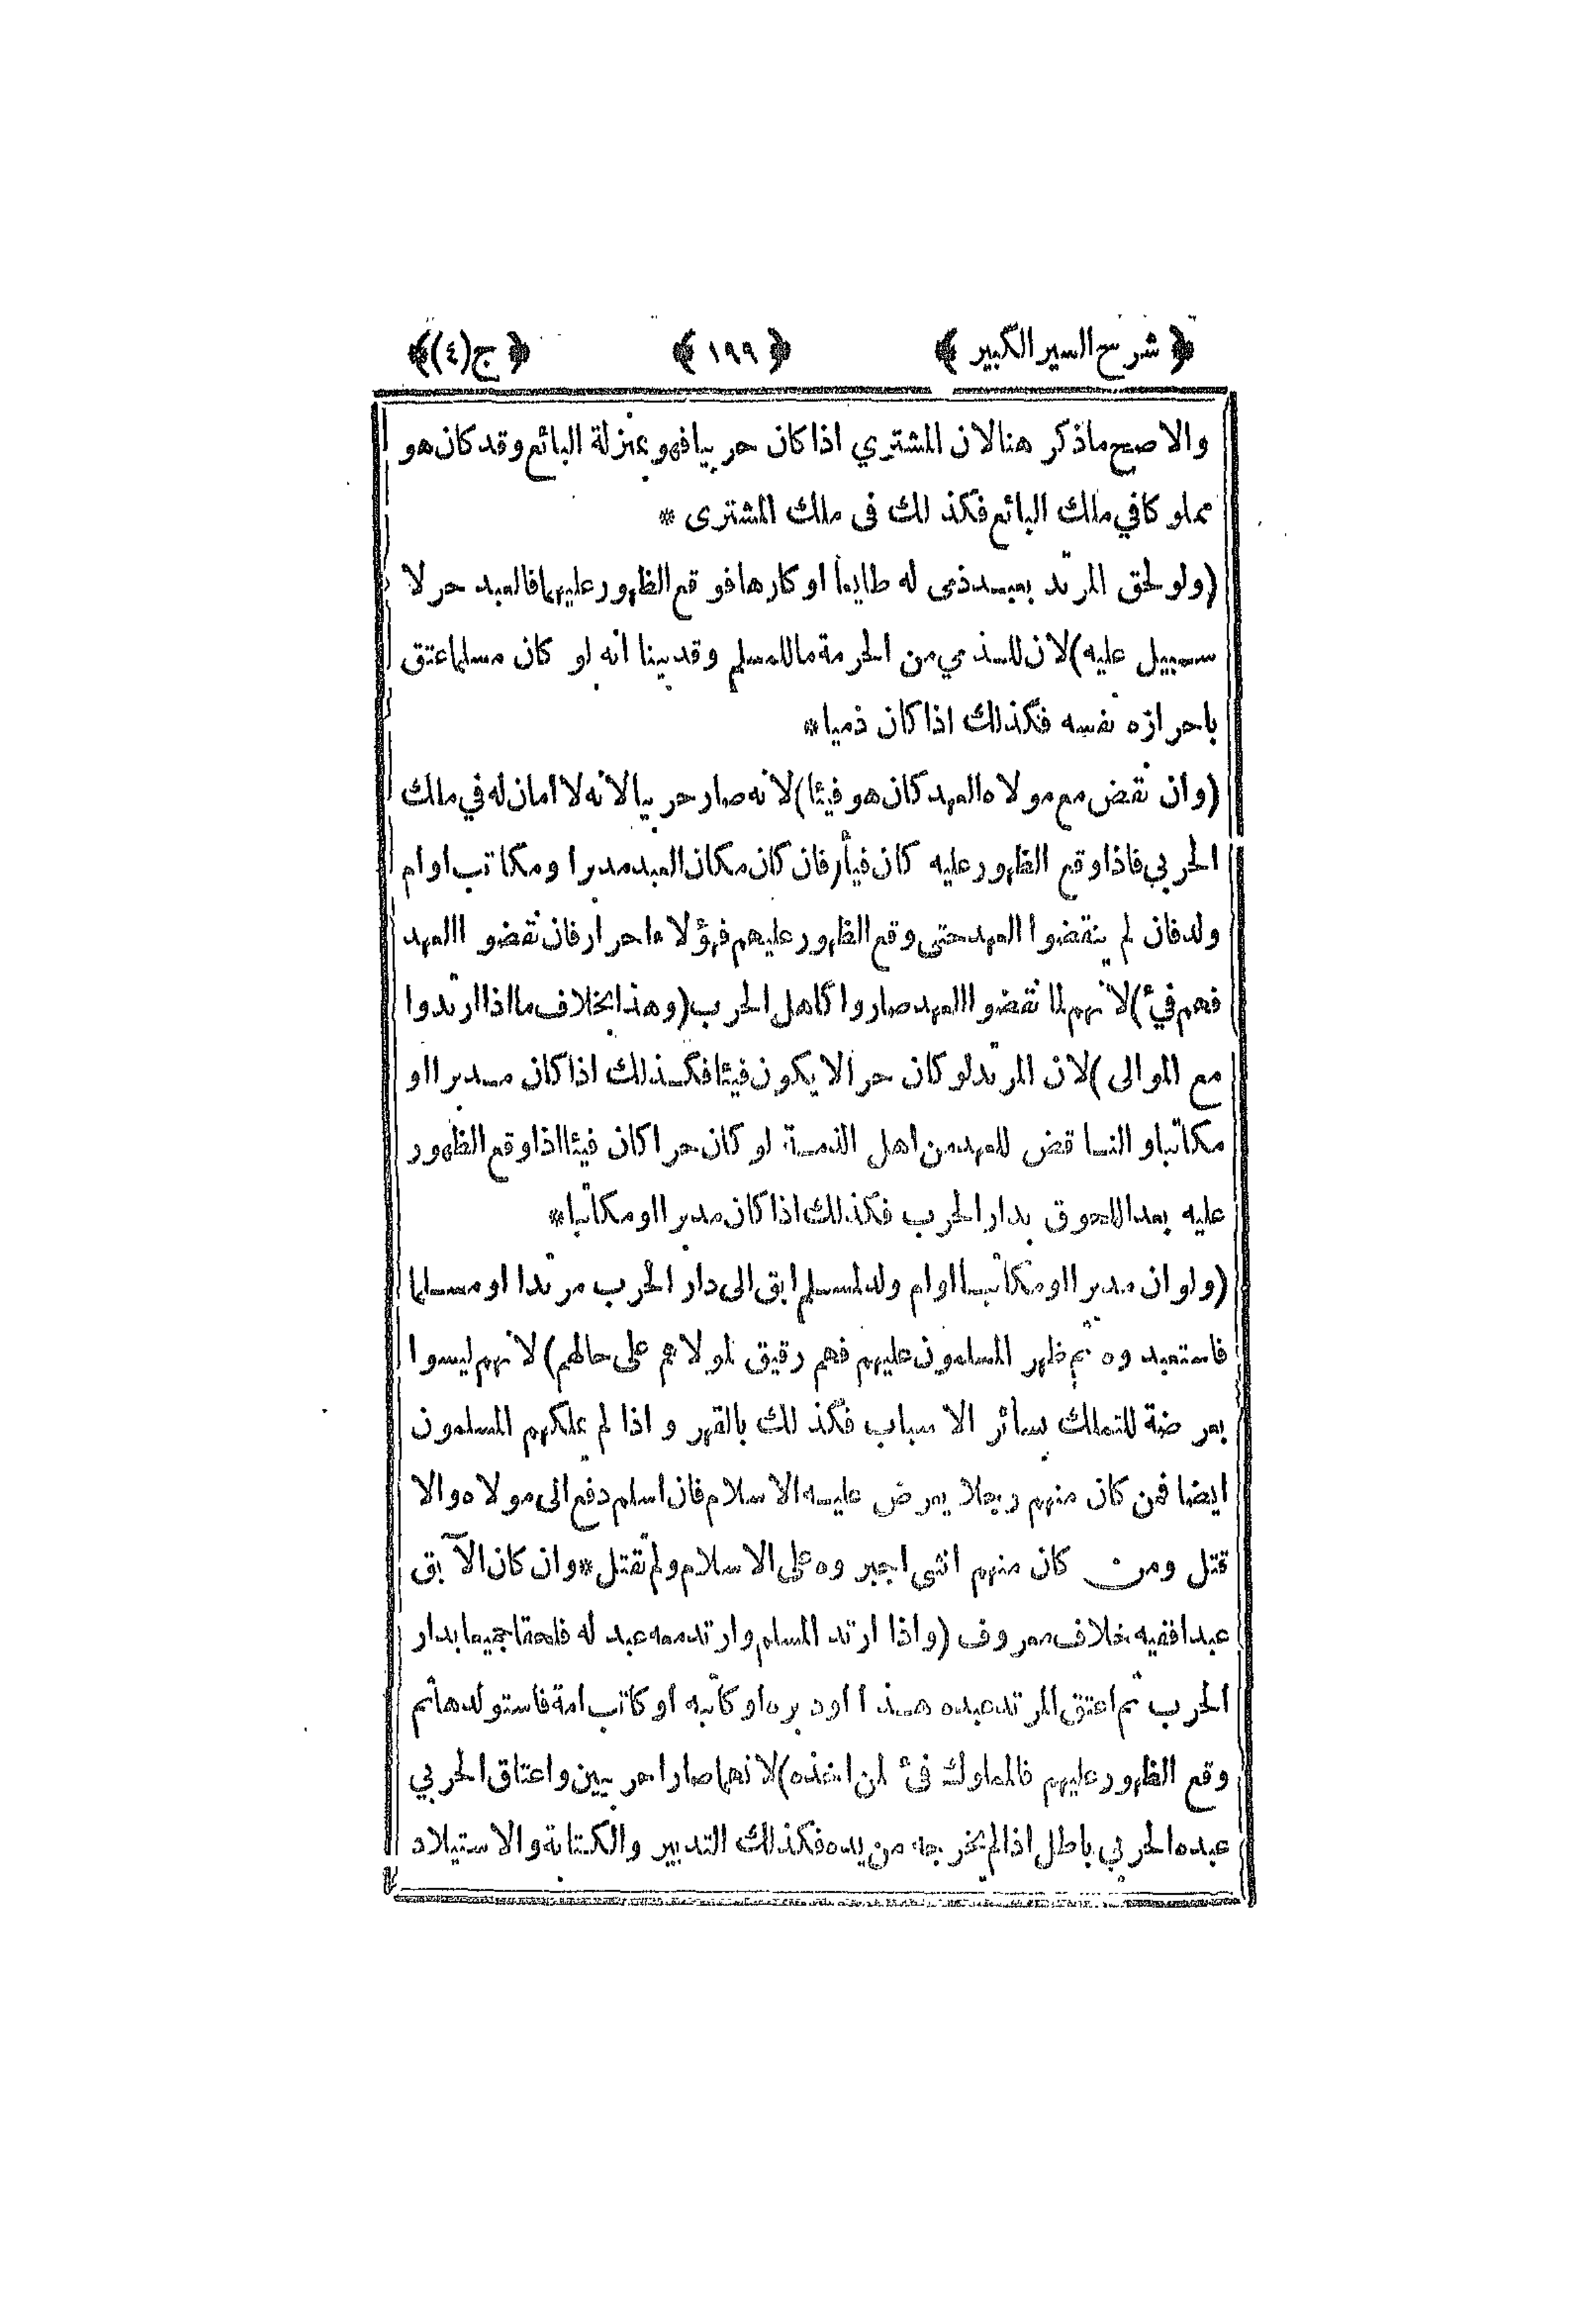 ﴿ شرح السير الكبير ﴾ ﴿ ١٩٩ ﴾ ﴿ ج (٤) ﴾
والاصح ما ذكر هنا لان المشترى اذا كان حر بيا فهو بمنزلة البائع وقد كان هو
مملوكا في ملك البائع فكذلك فى ملك المشترى *
(ولو لحق المرتد بعبد ذمى له طايعا او كارها فوقع الظهور عليهما فالعبد حر لا
سبيل عليه) لان للذمي من الحرمة ما للمسلم وقد بينا انه لو كان مسلما عتق
باحرازه نفسه فكذلك اذا كان ذميا *
(وان نقض مع مولاه العهد كان هو فيئا) لانه صار حربيا لانه لا امان له في ملك
الحربي فاذا وقع الظهور عليه كان فيأ (فان كان مكان العبد مدبرا ومكاتب او ام
ولد فان لم ينقضوا العهد حتى وقع الظهور عليهم فهؤلاء احرار فان نقضوا العهد
فهم فيء) لانهم لما نقضوا العهد صاروا كاهل الحرب (وهذا بخلاف ما اذا ارتدوا
مع الموالى) لان المرتد لو كان حرا لا يكون فيئا فكذلك اذا كان مدبرا او
مكاتبا والناقض للعهد من اهل الذمة لو كان حرا كان فيئا اذا وقع الظهور
عليه بعد اللحوق بدار الحرب فكذلك اذا كان مدبرا او مكاتبا *
(ولو ان مدبرا او مكاتبا او ام ولد لمسلم ابق الى دار الحرب مرتدا او مسلما
فاستعبدوه ثم ظهر المسلمون عليهم فهم رقيق لمولاهم على حالهم) لانهم ليسوا
بعرضة للتملك بسائر الاسباب فكذلك بالقهر واذا لم يملكهم المسلمون
ايضا فمن كان منهم رجلا يعرض عليه الاسلام فان اسلم دفع الى مولاه والا
قتل ومن كان منهم انثى اجبروه على الاسلام ولم تقتل * وان كان الآبق
عبدا ففيه خلاف معروف (واذا ارتد المسلم وارتد معه عبد له فلحقا جميعا بدار
الحرب ثم اعتق المرتد عبده هذا او دبره او كاتبه او كاتب امة فاستولدها ثم
وقع الظهور عليهم فالمملوك فىء لمن اخذه) لانهما صارا حربيين واعتاق الحربي
عبده الحربي باطل اذا لم يخرجه من يده فكذلك التدبير والكتابة والاستيلاد